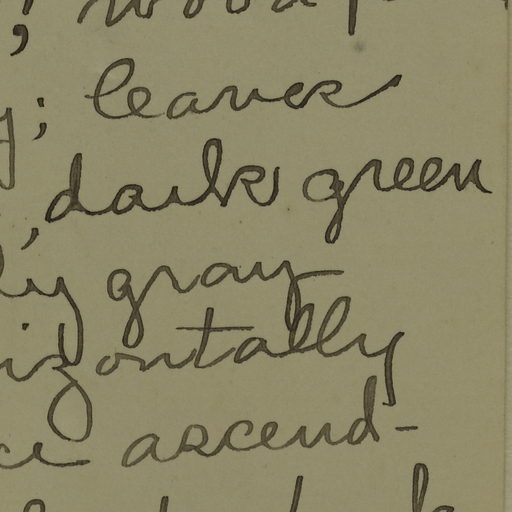 ; leaves
, dark green
ly gray
izontally
ascend-